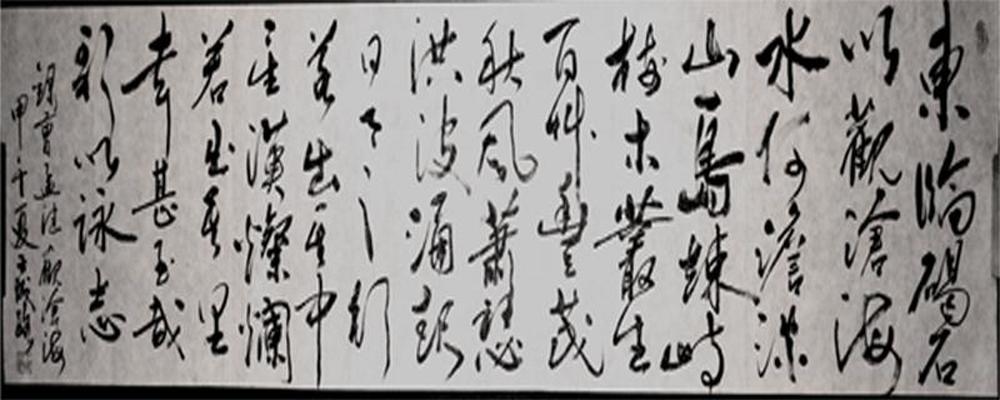 東臨碣石
以觀滄海
水何澹
山島竦峙
樹木叢生
百草豐茂
秋風蕭瑟
洪波涌起
日月之行
若出其中
星漢燦爛
若出其里
幸甚至哉
歌以詠志
曹孟德觀滄海
甲午夏